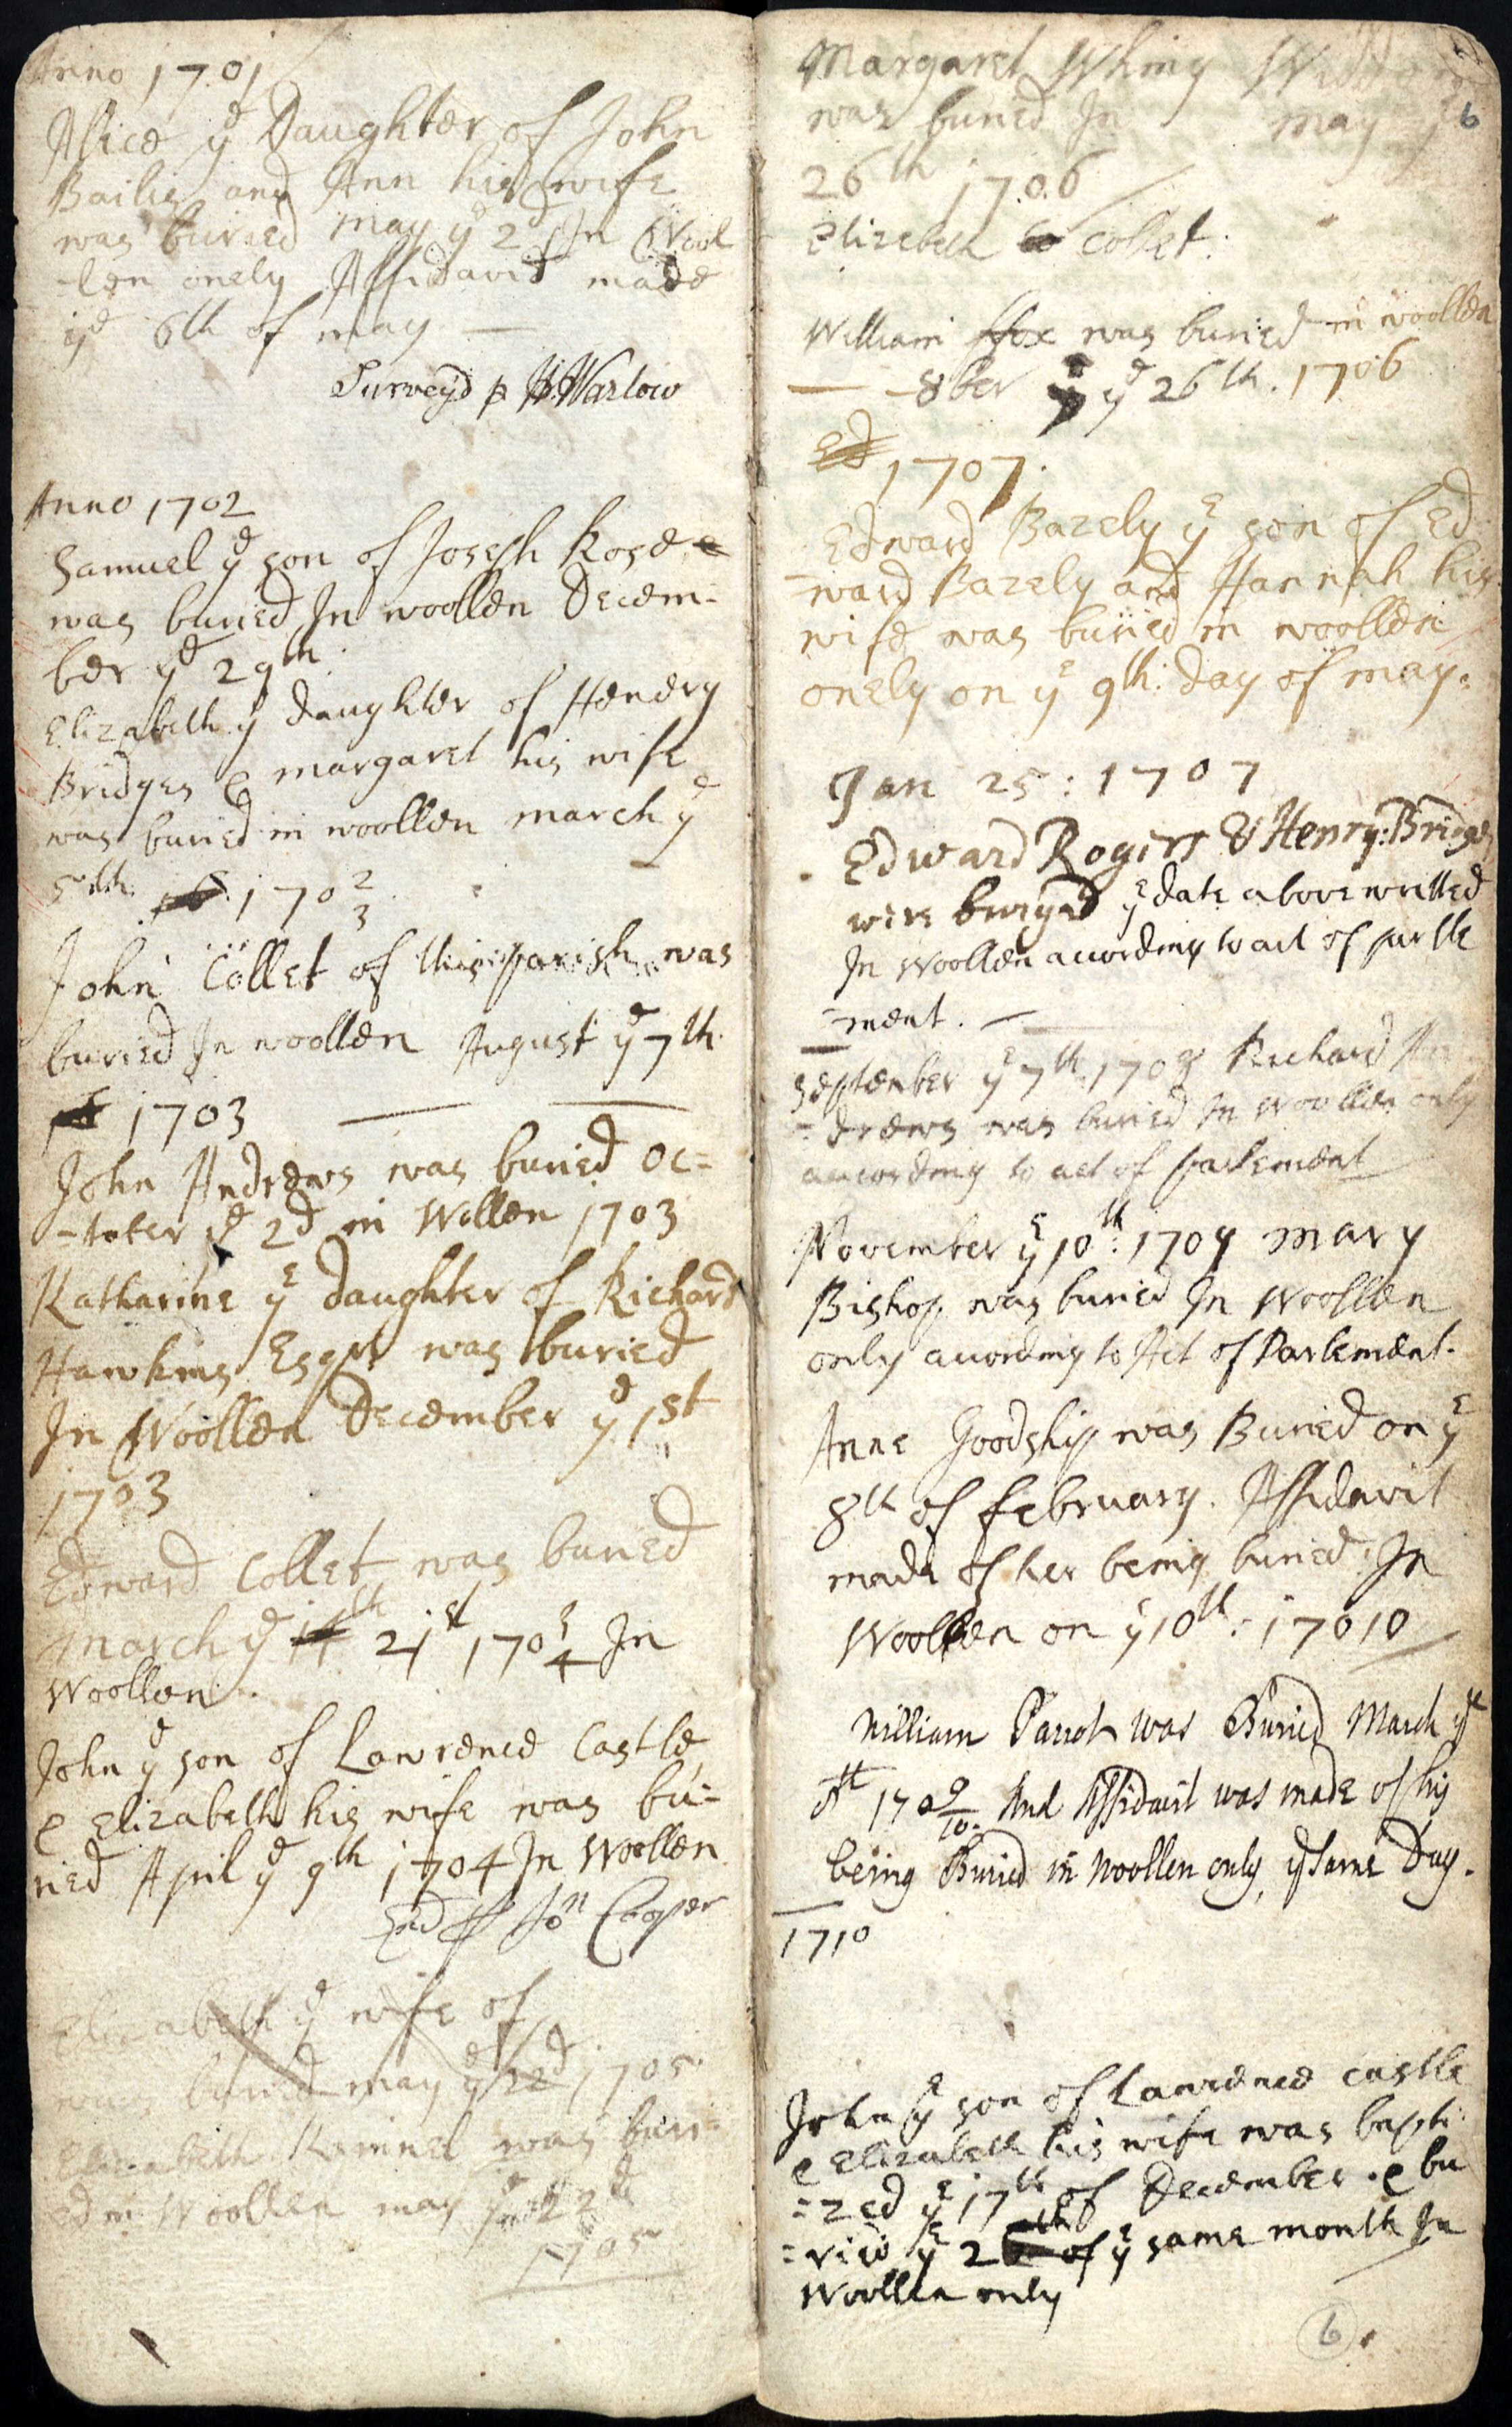 Anno 1701
Alice ye Daughter of John
Bailis and Ann his wife
was buried may ye 2d In Wool
-len onely Affidavit made
ye 6th of may —
Surveyd p W. Warlow
Anno 1702
Samuel ye son of Joseph Rose
was buried In woollen Decem-
ber ye 29th.
Elizabeth ye daughter of Henery
Bridges & margaret his wife
was buried in woollen march ye
5th. 170 2/3
John Collet of this parish was
buried In woollen August ye 7th.
1703
John Andrews was buried Oc=
-tober ye 2d in Wollen 1703
Katharine ye daughter of Richard
Hawkins Esqr was buried
In Woollen December ye 1st
1703
Edward Collet was buried
march ye 21st 170 3/4 In
Woollen.
John ye son of Lawrence Castle
& Elizabeth his wife was bu=
ried April ye 9th 1704 In Woollen
Jon Cooper
Elizabeth ye wife of
was buried may ye 22d 1705
Elizabeth was buri=
ed in Woollen may ye 22d
1705
Margaret Whing Widdow
was buried In may ye
26th 1706
Elizebeth Collet.
William ffox was buried in woollen
— -8ber ye 26th. 1706
1707.
Edward Bazely ye son of Ed
=ward Bazely and Hannah his
wife was buried in woollen
onely on ye 9th: day of may.
Jan 25: 1707
Edward Rogers & Henry: Bridges
were buryed ye date above writted
In Woollen according to act of parlle
=ment. —
September ye 7th 1708 Richard An
=drews was buried In woollen only
according to act of parlement
November ye 10th: 1709 mary
Bishop was buried In Woollen
only according to Act of Parlement.
Anne Goodship was Buried on ye
8th of february. Affidavit
made of her being buried In
Woollen on ye 10th: 17010
William Parrot was Buried March ye
8th 170 9/10. And Affidavit was made of his
being Buried in Woollen only, ye Same Day.
1710
John ye son of Lawrence castle
& Elizabeth his wife was bapti
=zed ye 17th of December. & bu
=ried ye 2 of ye same month In
Woollen only
6